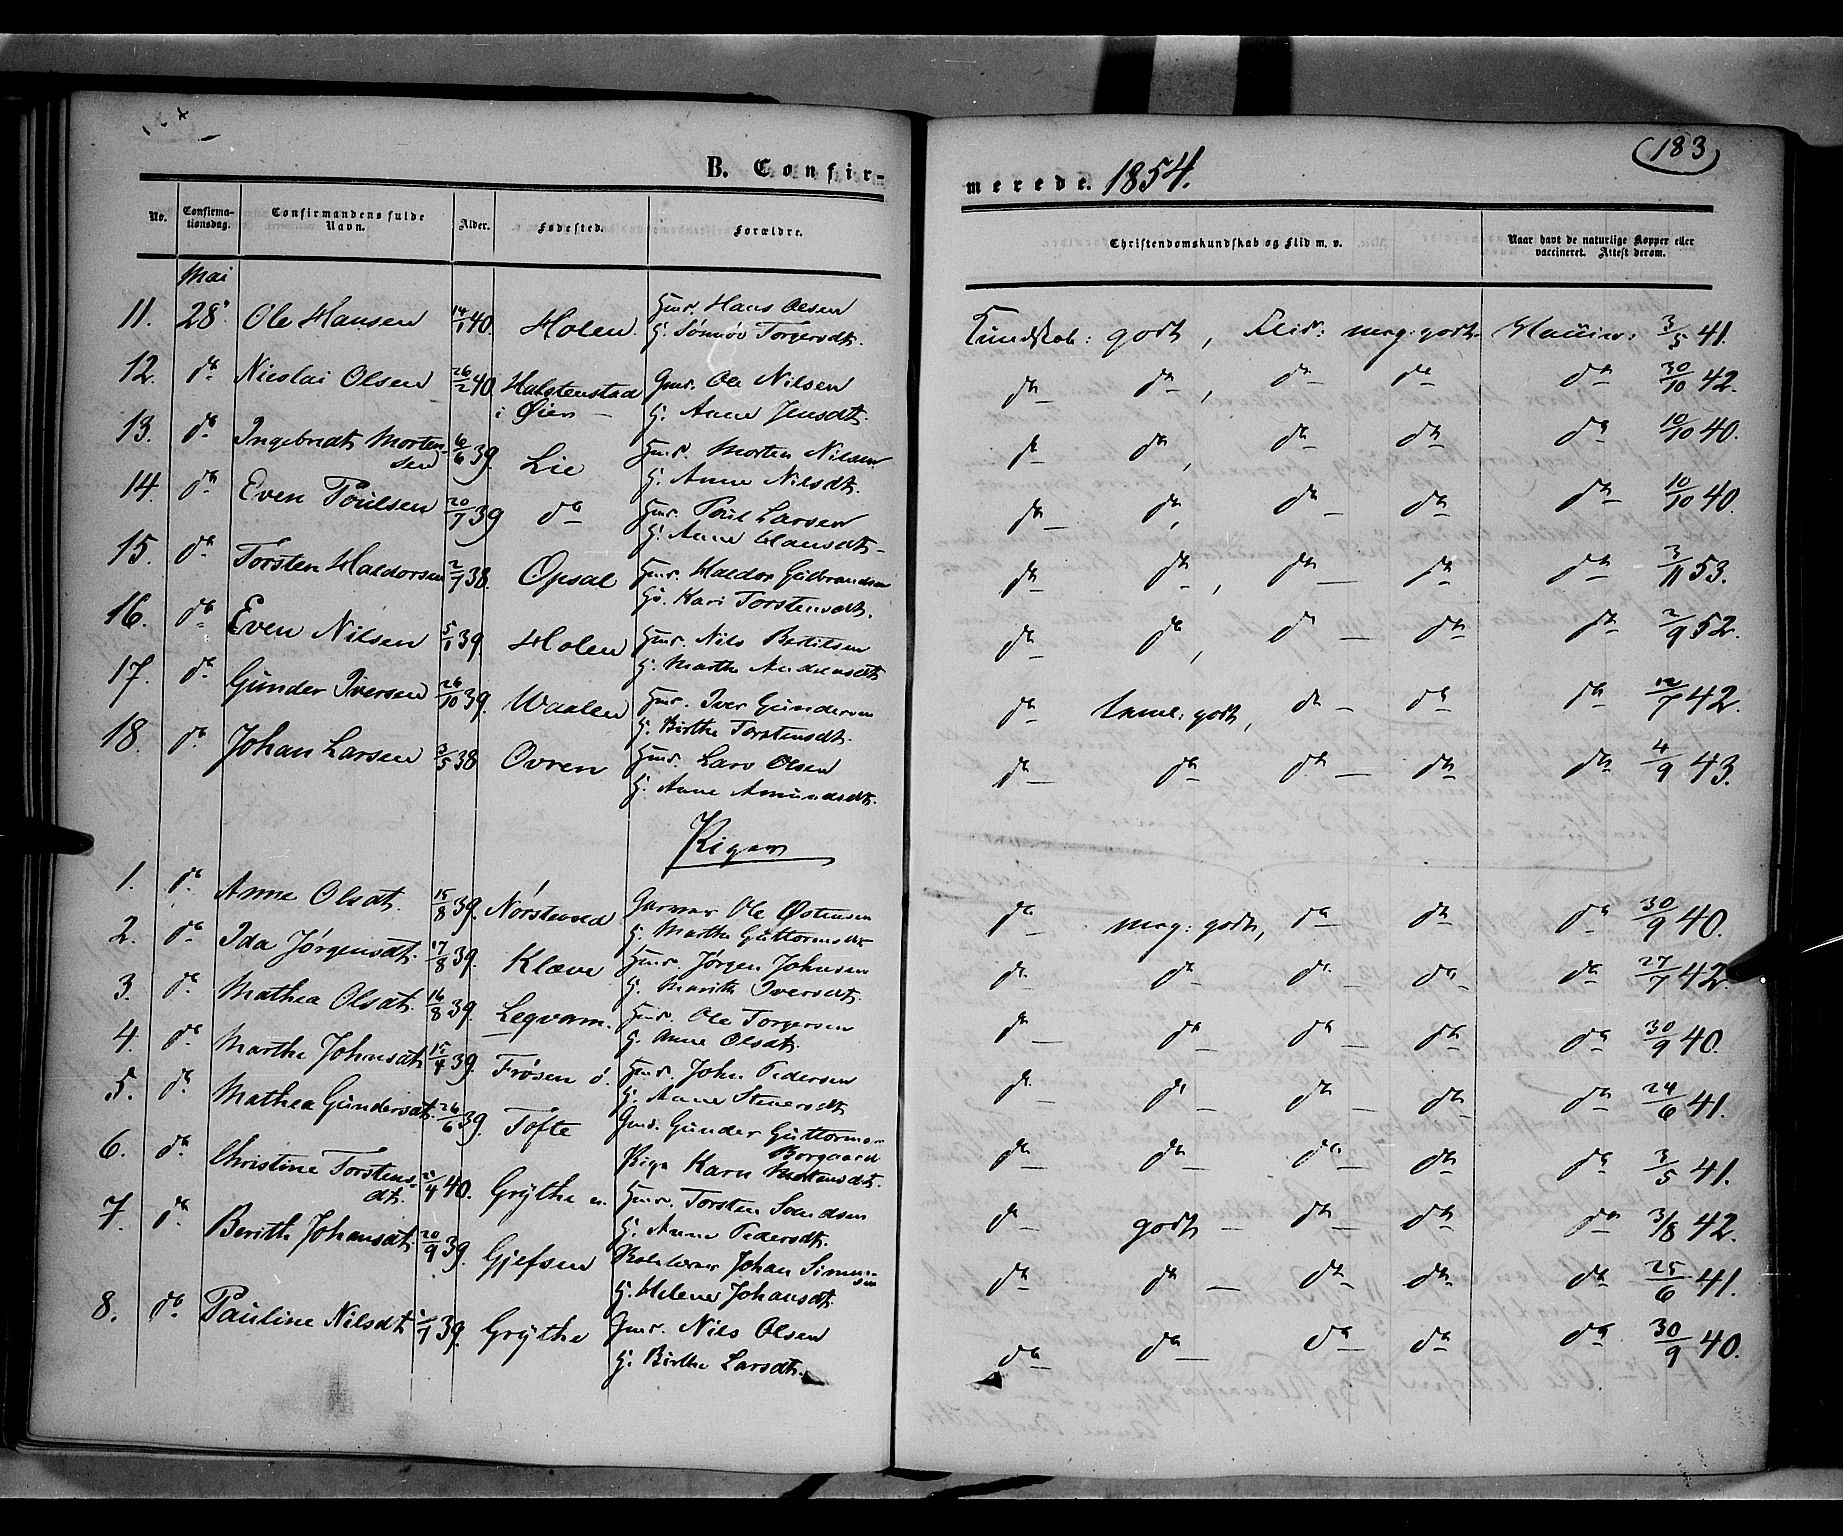 (183)
B. Confirmerede. 1854.
No. Confirmationsdag. Confirmandens fulde Navn. Alder. Fødested. Forældre. Christendomskundskab og Flid m. v. Naar havt de naturlige Kopper eller vaccineret. Attest derom.
Mai
11. 28' Ole Hansen 14/1 40 Holen Hmd. Hans Olsen Kundskab: godt, Flid: meg: godt. 3/5 41.
H. Torgersdt.
12. do Nicolai Olsen 26/2 40 Halstenstad Gmd. Ole Nilsen do do, do do do 30/10 42.
i Øien H. Anne Jensdt.
13. do Ingebredt Morten- 6/6 39. Lie Hmd. Morten Nilsen do do, do do do 10/10 40.
sen H. Anne Nilsdt.
14. do Even Poulsen 20/7 39 do Hmd. Poul Larsen do do, do do do 10/10 40.
H. Anne Hansdt.
15. do Torsten Haldorsen 2/7 38. Opsal Hmd. Haldor Gulbrandsen do do, do do do 3/11 53.
H. Kari Torstensdt.
16. do Even Nilsen 5/1 39. Holen Hmd. Nils Bertilsen do do, do do do 2/9 52.
H. Marthe Andersdt
17. do Gunder Iversen 26/10 39. Waalen Hmd. Iver Gundersen do taml: godt, do do do 12/7 42.
H. Birthe Torstensdt.
18. do Johan Larsen 3/5 38 Ovren Hmd. Lars Olsen do do do do do 4/9 43.
H. Anne Amundsdt.
Piger
1. do Anne Olsdt. 15/8 39. Ole Østensen do meg: godt, do do do 30/9 40.
H. Marthe Guttormsdt
2. do Ida Jørgensdt. 17/8 39. Klæve Hmd. Jørgen Johnsen do do do do do 27/7 42.
H. Marithe Iversdt.
3. do Mathea Olsdt. 16/8 39. Legvam. Hmd. Ole Torgersen do do do do do 30/9 40.
H. Anne Olsdt.
4. do Marthe Johnsdt. 15/4 39. Frøsen ø. Hmd. John Pedersen do do do do do 24/6 41.
H. Anne Steuersdt
5. do Mathea Gundersdt. 26/6 39. Tofte Gmd. Gunder Guttormsen do do do do do 3/5 41.
Borgaard
Pige Karn Mortensdt.
6. do Christine Torstens- 2/4 40. Grythe n. Hmd. Torsten do godt do do do 3/8 42.
dt. H. Anne Pedersdt.
7. do Berithe Johansdt. 20/9 39. Gjefsen Johan Simen- do do do do do 25/6 41.
sen
H. Helene Johansdt.
8. do Pauline Nilsdt 39. Grythe Gmd. Nils Olsen do do do do do 30/9 40.
H. Birthe Larsdt.